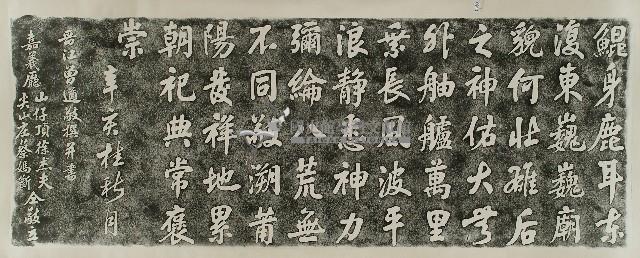 鯤身鹿耳東
復東巍巍廟
貌何壯雄后
之神佑大
外舳艫萬里
乘長風波平
浪靜悉神力
彌綸八荒無
不同敬溯莆
陽發祥地累
朝祀典常褒
崇
辛亥桂秋月
晉江曾遒敬撰并書
嘉義廳山仔頂徐杰夫
尖山庄蔡 仝敬立